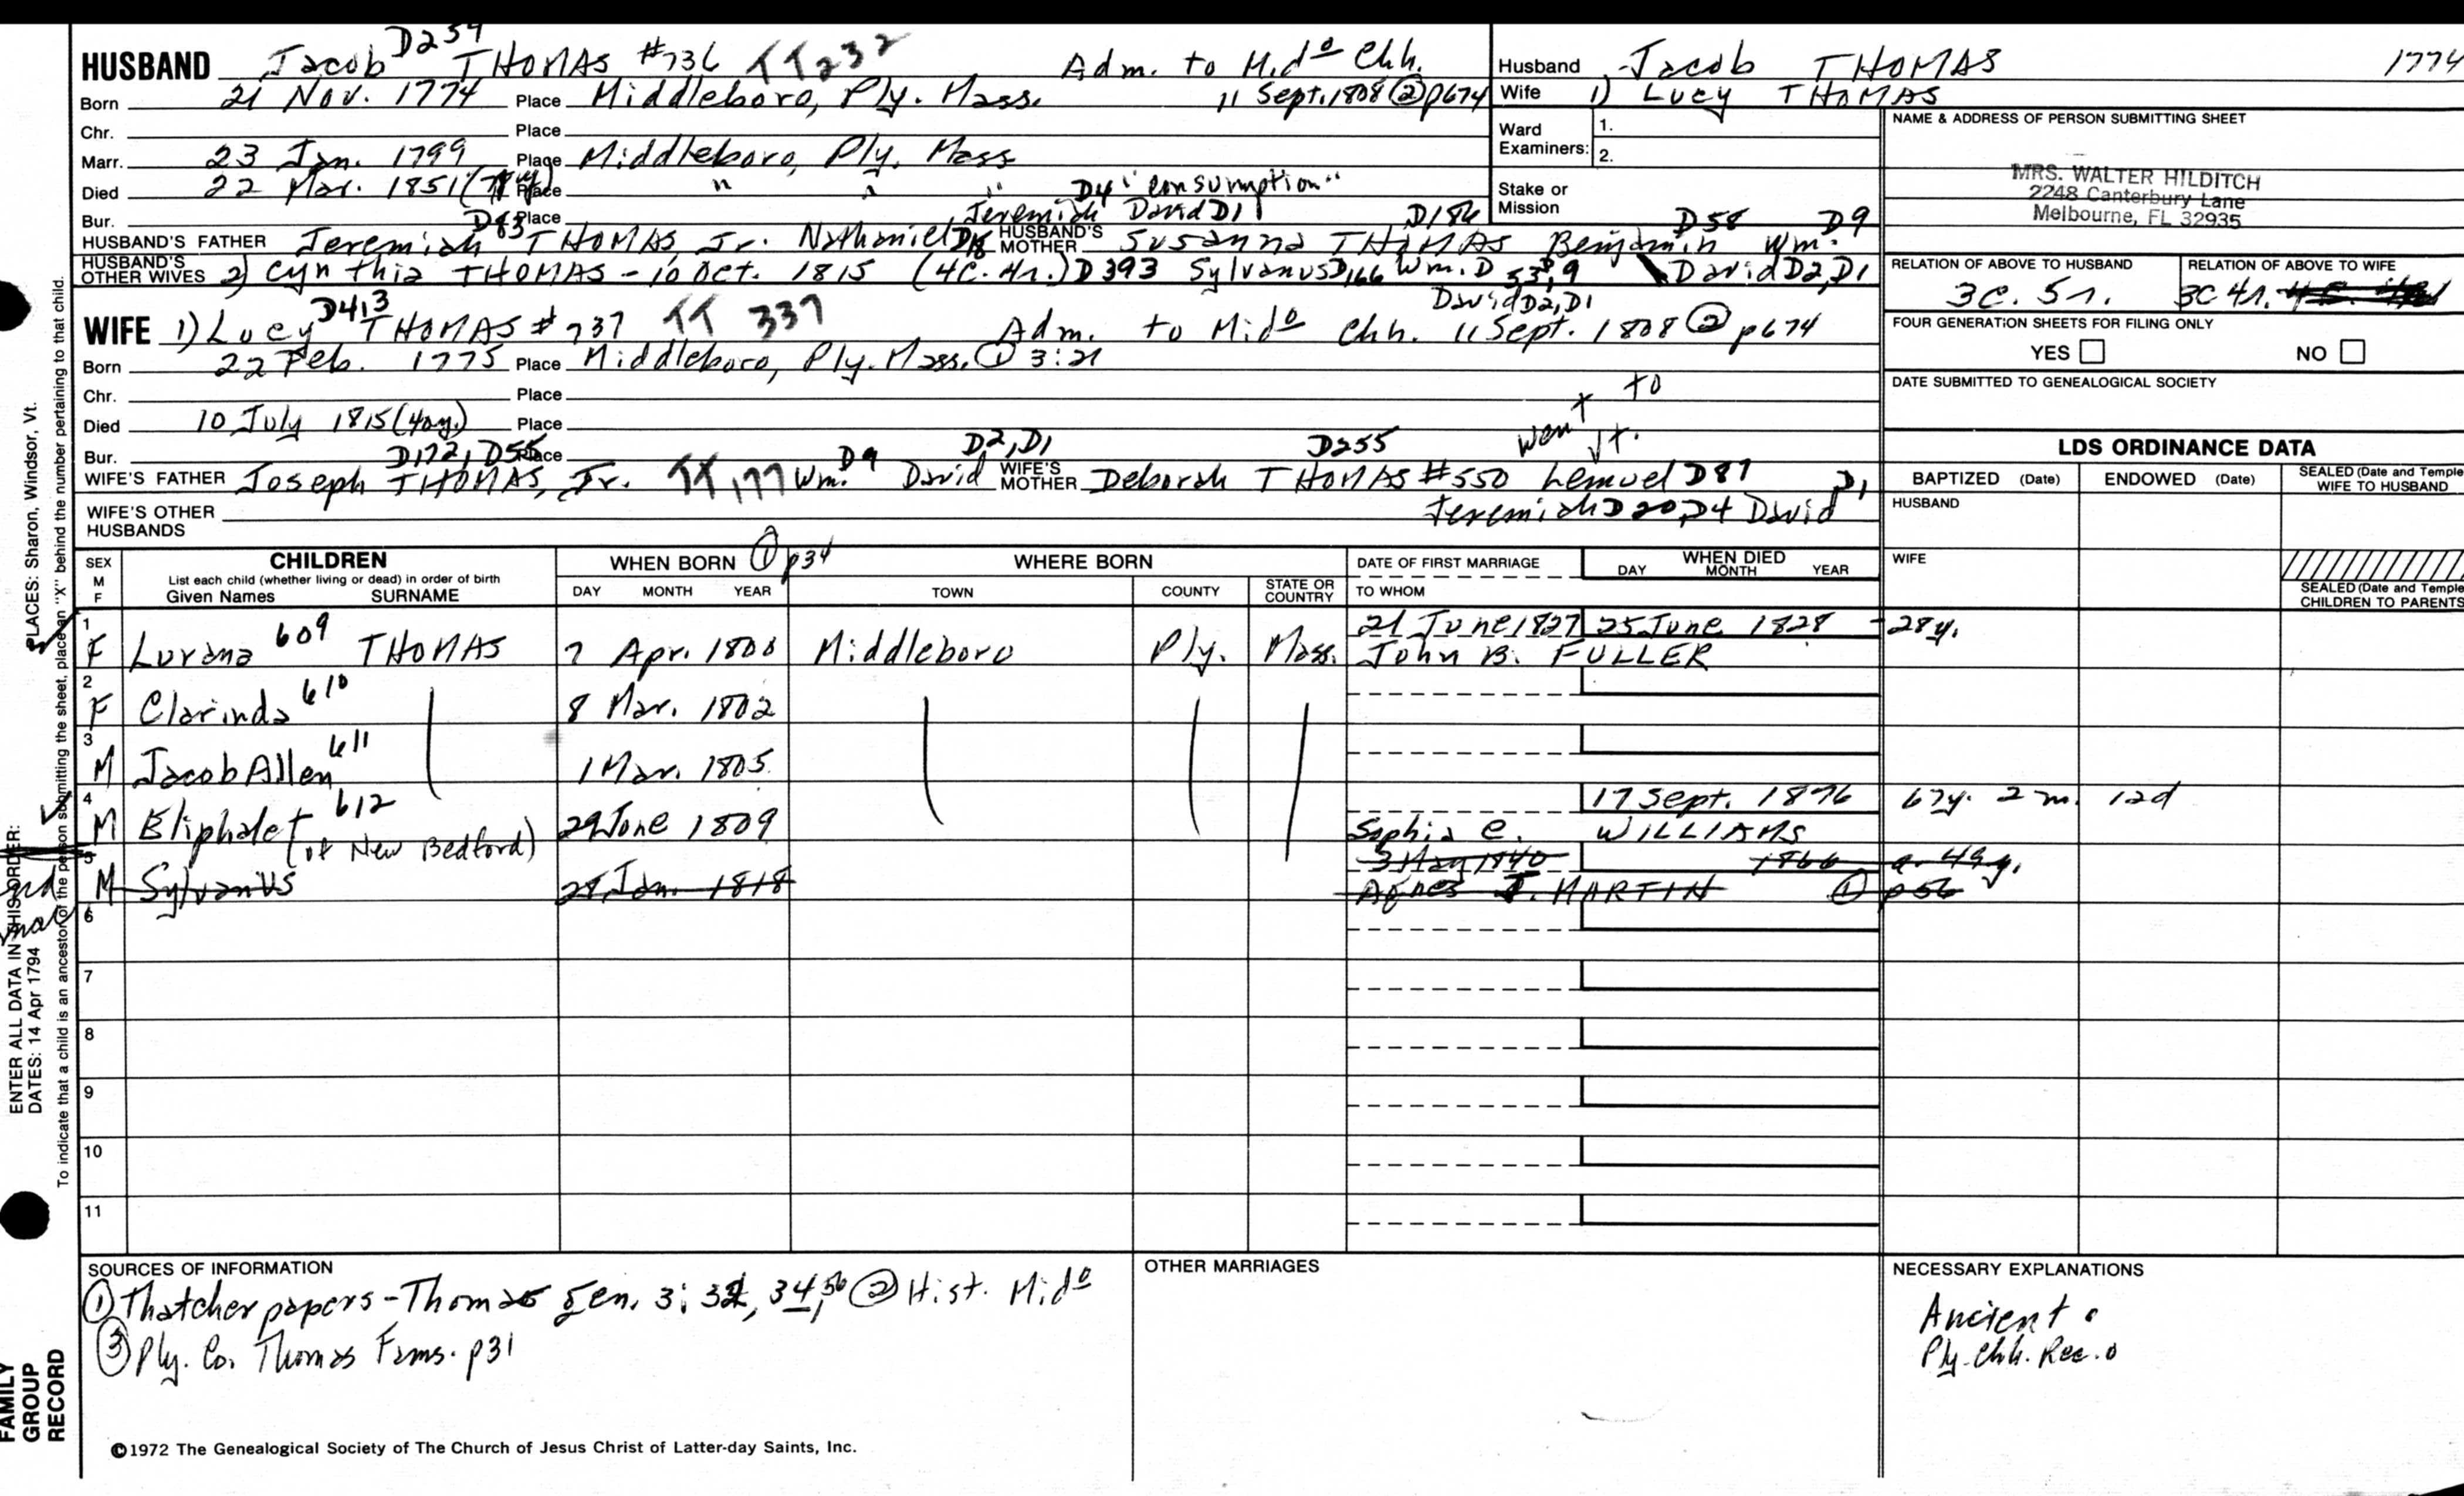 HUSBAND Jacob D259 THOMAS #736 TT232 Adm. to Mido Chh.
Born 21 Nov. 1774 Place Middleboro, Ply. Mass. 11 Sept. 1808 ② p674
Chr. Place
Marr. 23 Jan. 1799 Place Middleboro, Ply. Mass
Died 22 Mar. 1851 Place " " " D4 "consumption"
Bur. Place Jeremiah David D1
HUSBAND'S FATHER Jeremiah D83 THOMAS, Jr. Nathaniel D18 HUSBAND'S MOTHER Susanna D186 THOMAS Benjamin D58 Wm. D9
HUSBAND'S OTHER WIVES 2) Cynthia THOMAS - 10 Oct. 1815 (4C. 4r.) D393 Sylvanus D166 Wm. D53, 9 David D2, D1
David D2, D1
WIFE 1) Lucy D413 THOMAS #737 TT 337 Adm. to Mido Chh. 11 Sept. 1808 ② p674
Born 22 Feb. 1775 Place Middleboro, Ply. Mass. ① 3:21
Chr. Place
Died 10 July 1815 (40y.) Place
Bur. Place went to Vt.
WIFE'S FATHER Joseph D172, D55 THOMAS, Jr. TT,177 Wm. D9 David D2, D1 WIFE'S MOTHER Deborah D255 THOMAS #550 Lemuel D87
WIFE'S OTHER HUSBANDS Jeremiah D20, D4 David D1
Husband Jacob THOMAS 1774
Wife 1) Lucy THOMAS
Ward Examiners: 1.
2.
Stake or Mission
NAME & ADDRESS OF PERSON SUBMITTING SHEET
MRS. WALTER HILDITCH
2248 Canterbury Lane
Melbourne, FL 32935
RELATION OF ABOVE TO HUSBAND RELATION OF ABOVE TO WIFE
3C. 5r. 3C 4r.
FOUR GENERATION SHEETS FOR FILING ONLY
YES NO
DATE SUBMITTED TO GENEALOGICAL SOCIETY
LDS ORDINANCE DATA
BAPTIZED (Date) ENDOWED (Date) SEALED (Date and Temple) WIFE TO HUSBAND
HUSBAND
WIFE
SEALED (Date and Temple) CHILDREN TO PARENTS
SEX M F CHILDREN WHEN BORN ① p34 WHERE BORN DATE OF FIRST MARRIAGE WHEN DIED
List each child (whether living or dead) in order of birth
Given Names SURNAME DAY MONTH YEAR TOWN COUNTY STATE OR COUNTRY TO WHOM DAY MONTH YEAR
1 F Lurana 609 THOMAS 7 Apr. 1800 Middleboro Ply. Mass. 21 June 1827 25 June 1828 28y.
John B. FULLER
2 F Clarinda 610 8 Mar. 1802
3 M Jacob Allen 611 1 Mar. 1805
4 M Eliphalet 612 (of New Bedford) 29 June 1809 17 Sept. 1876 67y. 2 m. 12d
Sophia E. WILLIAMS
5 M Sylvanus 28 Jan. 1818 3 May 1840 1866 a. 49y.
Agnes J. MARTIN ① p56
6
7
8
9
10
11
SOURCES OF INFORMATION
① Thatcher papers - Thomas gen. 3: 32, 34, 56 ② Hist. Mido
③ Ply. Co. Thomas Fams. p31
OTHER MARRIAGES
NECESSARY EXPLANATIONS
Ancient
Ply. Chh. Rec.
©1972 The Genealogical Society of The Church of Jesus Christ of Latter-day Saints, Inc.
FAMILY GROUP RECORD
ENTER ALL DATA IN THIS ORDER:
DATES: 14 Apr 1794
PLACES: Sharon, Windsor, Vt.
To indicate that a child is an ancestor of the person submitting the sheet, place an "X" behind the number pertaining to that child.